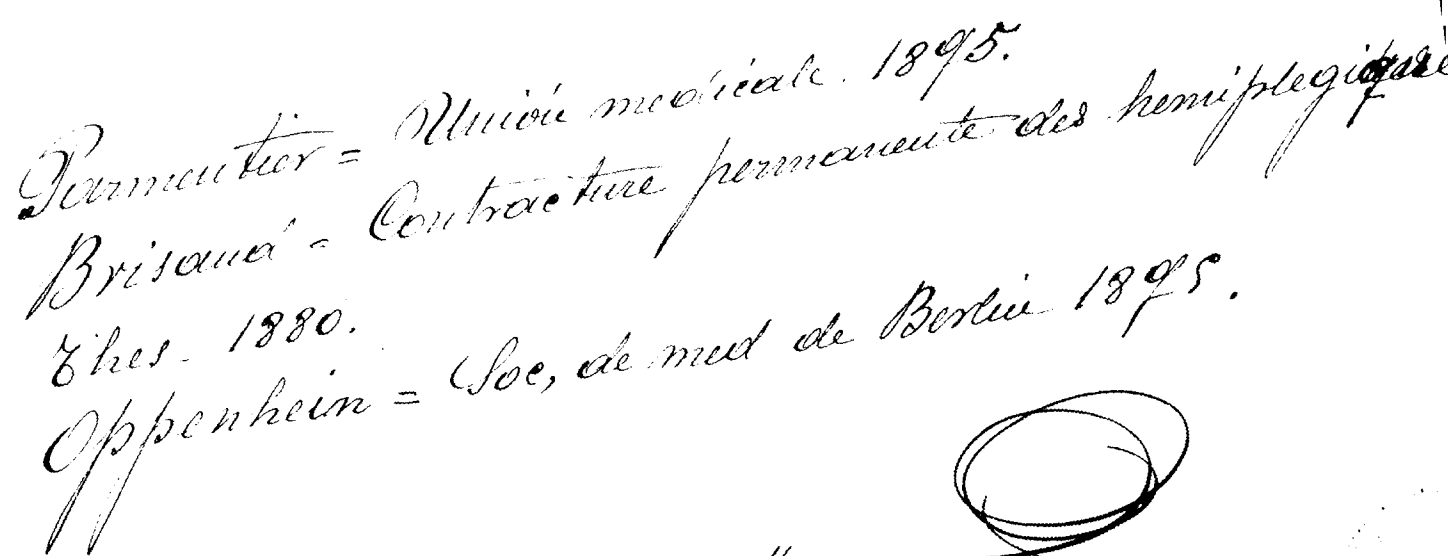 Parmentier = Unión medicale. 1895.
Brisaud = Contracture permanente des hemiplegiques
Thes. 1880.
Oppenhein = Soc, de med de Berlin 1895.